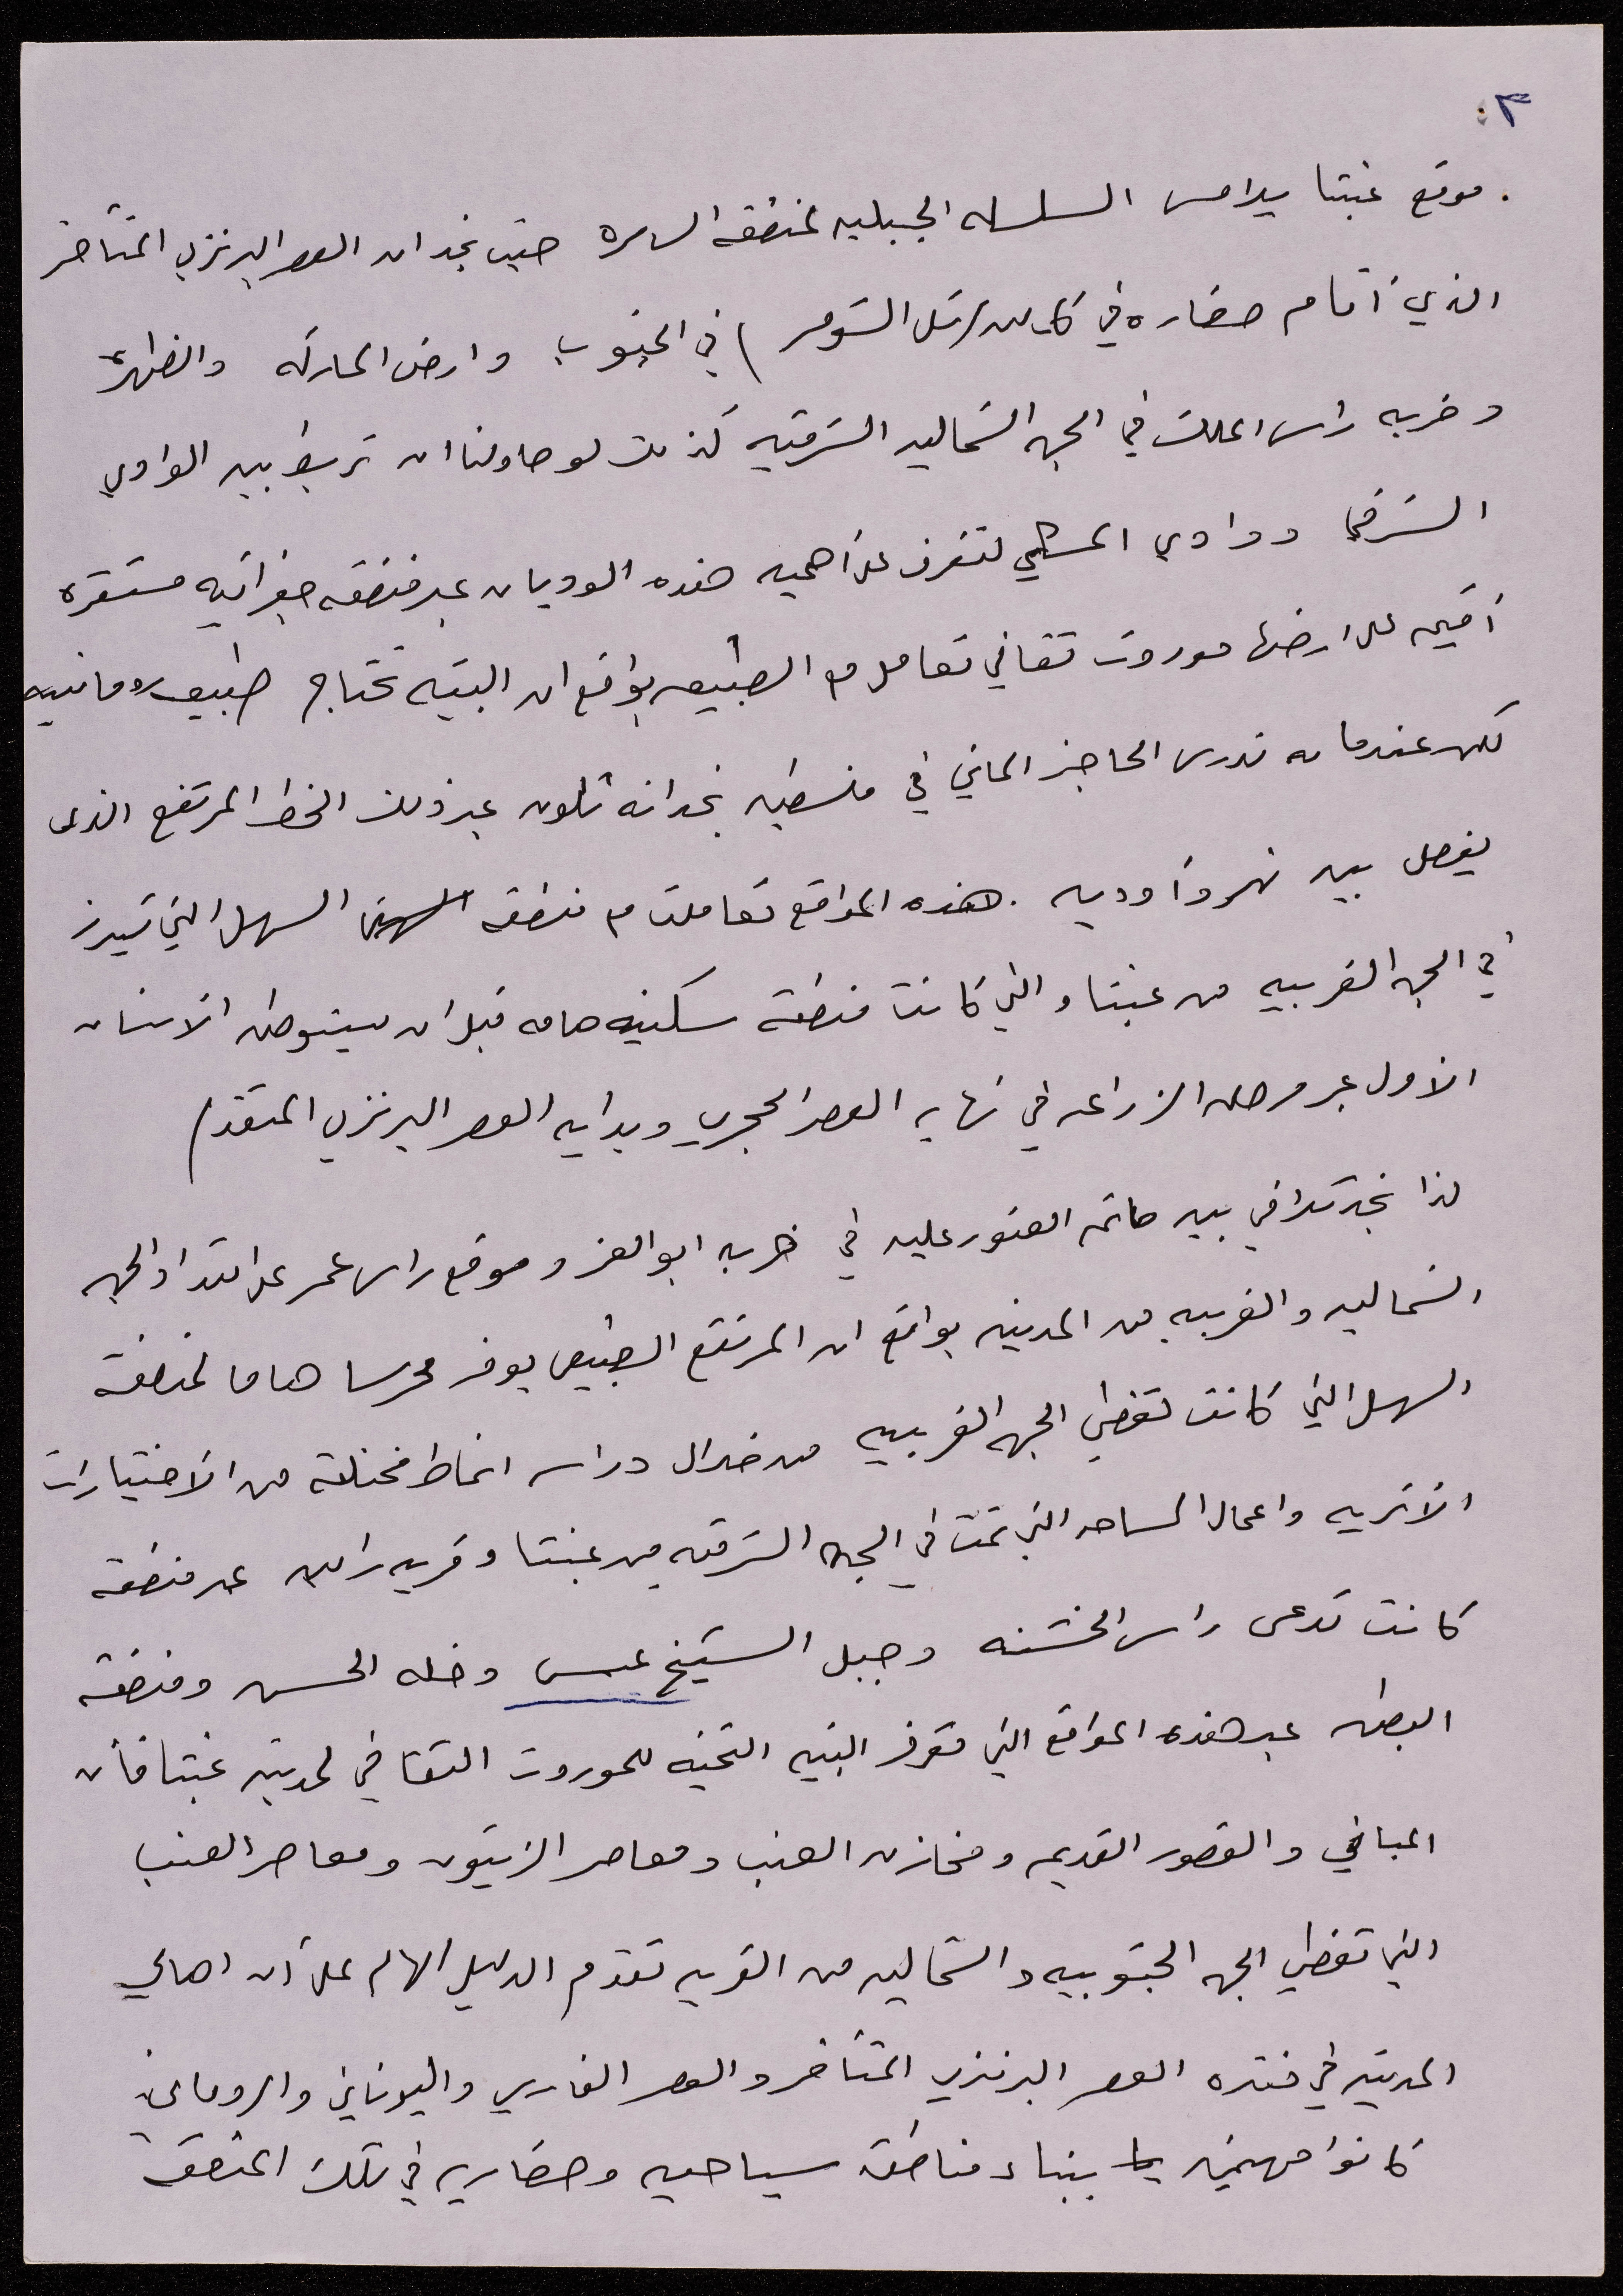 ٣:
. موقع عنبتا يلامس السلسله الجبليه لمنطقة السامره حيث نجد ان العصر البرنزي المتأخر
الذي أقام حضاره في كل من (تل الشومر) في الجنوب وارض الماركه والظهره
وخربه راس الملك في الجهه الشماليه الشرقيه كذلك لو حاولنا ان نربط بين الوادي
الشرقي ووادي المسكي لتعرف على أهميه هذه الوديان عبر منطقه جغرافيه مستقره
أقيم على ارضها موروث ثقافي تعامل مع الطبيعه بواقع ان البيئه تحتاج طبيعه ومانيه
لكن عندما ندرس الحاجز المائي في فلسطين نجد انه تكون عبر ذلك الخط المرتفع الذى
يفصل بين نهر وأوديه . هذه المواقع تعاملت مع منطقة السهل التي تبرز
في الجهه الغربيه من عنبتا والتي كانت منطقة سكنيه هامه قبل ان يستوطن الانسان
الأول عبر مرحله الزراعه في نهايه العصر الحجري وبدايه العصر البرنزي المتقدم
لذا نجد تلاقي بين ماتم العثور عليه في خربه ابو العز وموقع راس عمر على امتداد الجهه
الشماليه والغربيه من المدينه بواقع ان المرتفع الطبيعي يوفر محرسا هاما لمنطقة
السهل التي كانت تغطي الجهه الغربيه من خلال دراسه انماط مختلفة من الاختيارات
الأثريه واعمال المساحه التي تمت في الجهه الشرقيه من عنبتا وقريه رامين عبر منطقه
كانت تدعى راس الخشنه وجبل الشيخ عبس وخله الحسن ومنطقه
البطن عبر هذه المواقع التي تفرز البنيه التحتيه للموروث الثقافي لمدينه عنبتا فأن
المباني والقصور القديمه ومخازن العنب ومعاصر الزيتون ومعاصر العنب
التي تغطي الجهه الجنوبيه والشماليه من القريه تقدم الدليل الهام على أن اهالي
المدينه في فتره العصر البرنزي المتأخر والعصر الفارسي واليوناني والروماني
كانوا مهتمين ببناء مناطق سياحيه وحضاريه في تلك المنطقة